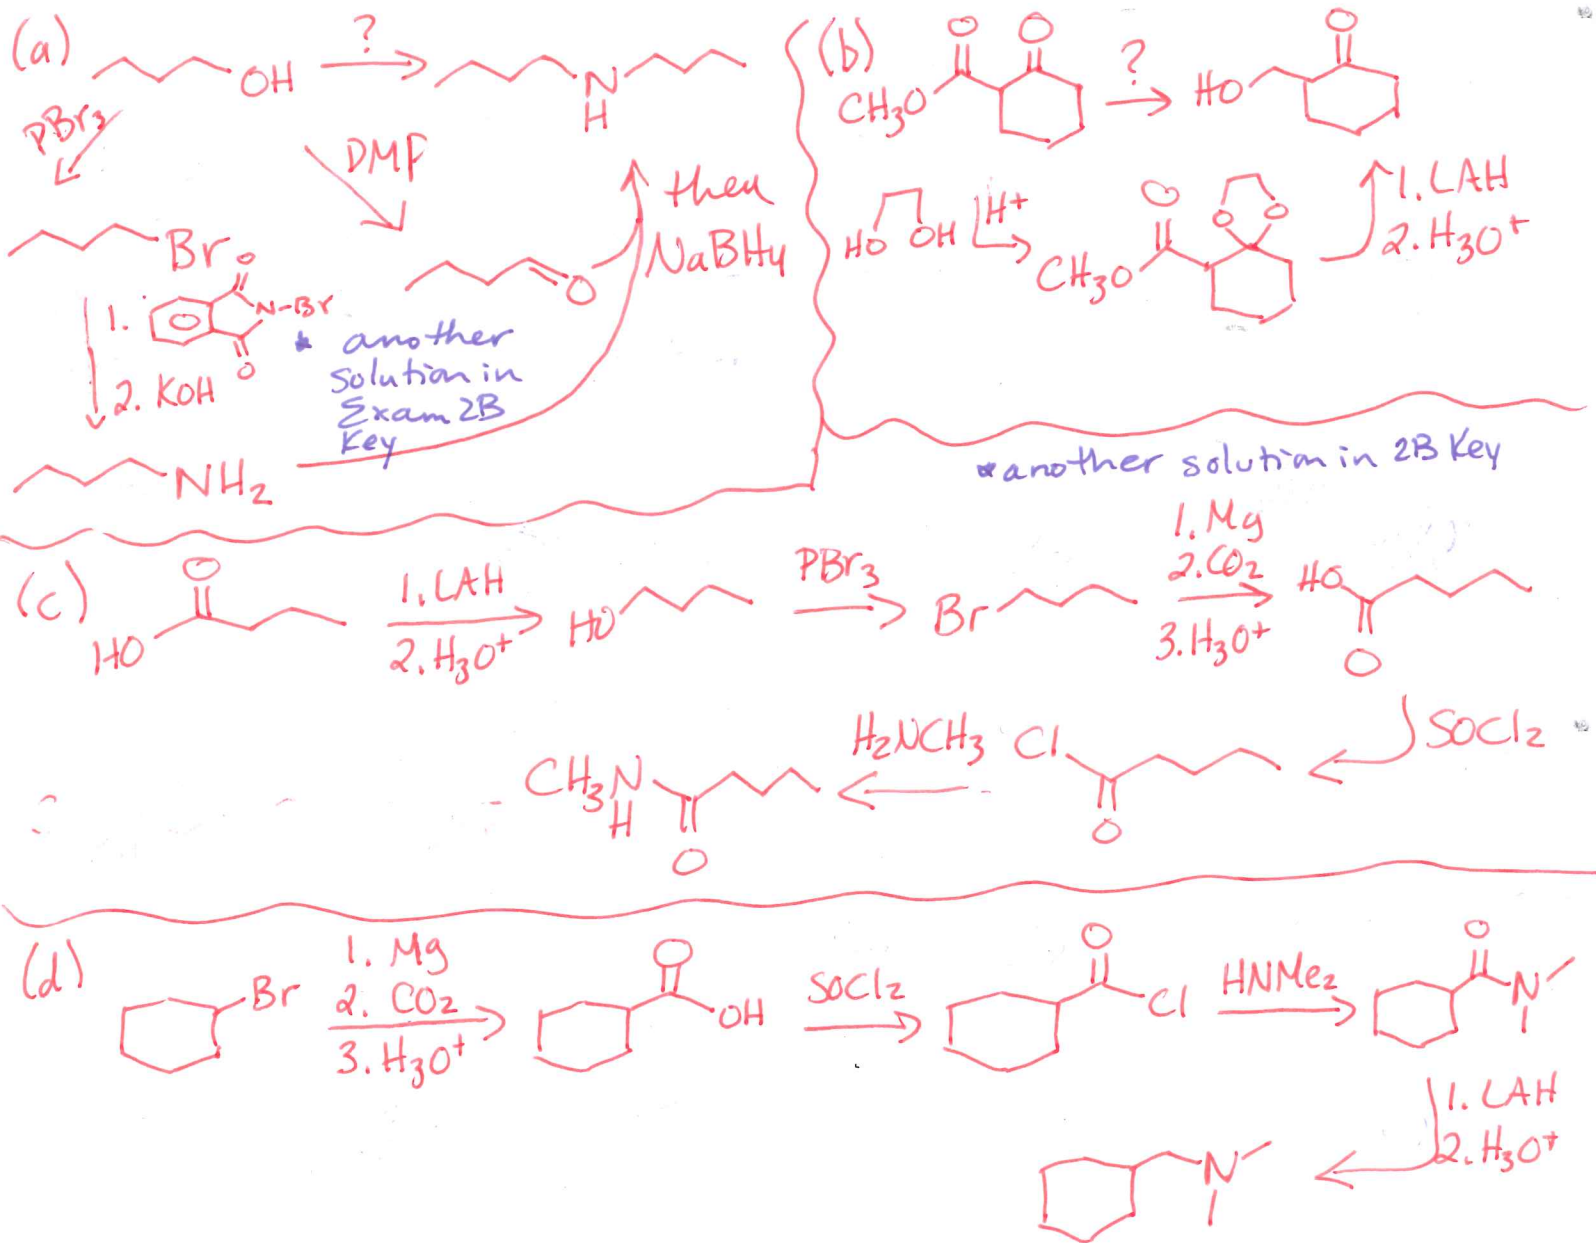 (a)
OH
?
N
H
PBr3
DMF
then
NaBH4
Br
O
1.
O
N-Br
O
2. KOH
* another
solution in
Exam 2B
Key
NH2
(b)
O O
CH3O
?
HO
O
HO OH
H+
O
O O
CH3O
1. LAH
2. H3O+
*another solution in 2B Key
(c)
O
HO
1. LAH
2. H3O+
HO
PBr3
Br
1. Mg
2. CO2
3. H3O+
HO
O
SOCl2
Cl
O
H2NCH3
CH3N
H
O
(d)
Br
1. Mg
2. CO2
3. H3O+
O
OH
SOCl2
O
Cl
HNMe2
O
N
1. LAH
2. H3O+
N